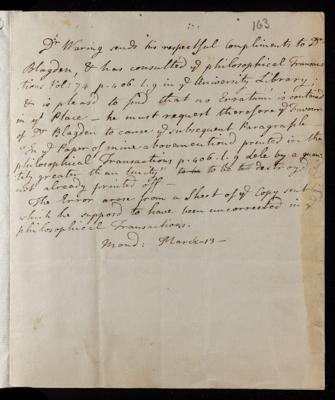 163
Dr Waring sends his respectful compliments to Dr
Blagden, & has consulted ye philosophical Transac
tions Vol: 74 p. 406. l. 9 in ye University Library;
& is pleased to find that no Erratum is contained
in ye Place – he must request therefore ye Favour
of Dr Blagden to cause ye subsequent Paragraph
"In ye Paper of mine abovementioned printed in the
philosophical Transactions p. 406. l. 9 dele by a quan
tity greater than unity" to be destroy'd
not already printed off –
The Error arose from a Sheet of ye Copy sent
which he supposed to have been uncorrected in ye
philosophical Transactions.
Mond: March 13 –